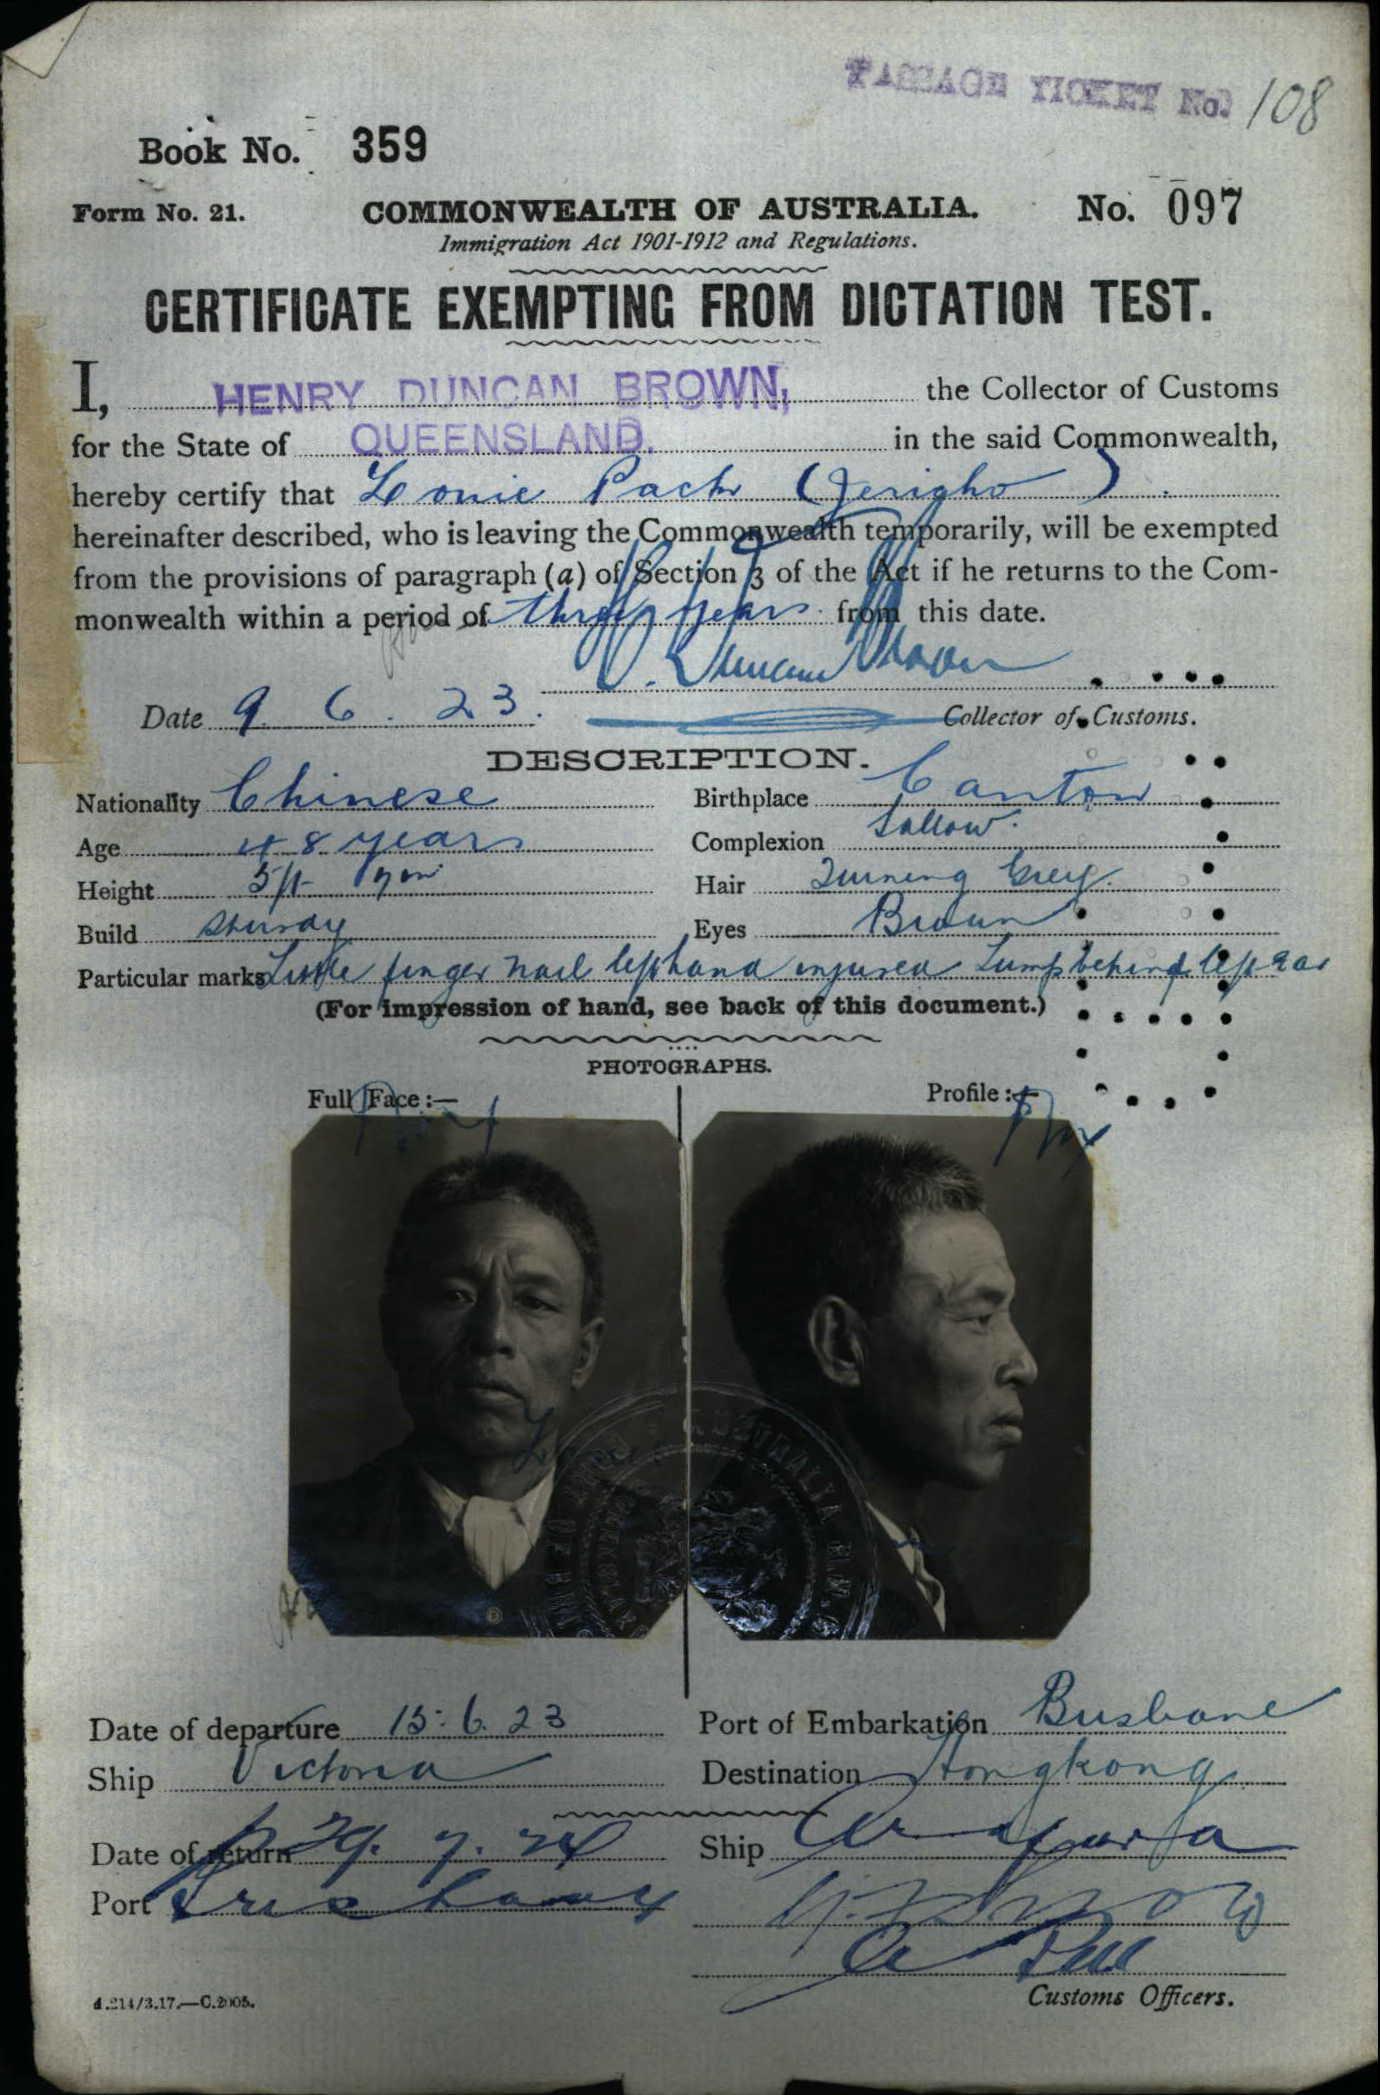 PASSAGE TICKET No. 108
Book No. 359
Form No. 21. COMMONWEALTH OF AUSTRALIA. No. 097
Immigration Act 1901-1912 and Regulations.
CERTIFICATE EXEMPTING FROM DICTATION TEST.
I, HENRY DUNCAN BROWN, the Collector of Customs
for the State of QUEENSLAND. in the said Commonwealth,
hereby certify that Pack (Jerigho)
hereinafter described, who is leaving the Commonwealth temporarily, will be exempted
from the provisions of paragraph (a) of Section 3 of the Act if he returns to the Com-
monwealth within a period of three years from this date.
H. Duncan Brown
Date 9. 6. 23. Collector of Customs.
DESCRIPTION.
Nationality Chinese Birthplace Canton
Age 48 years Complexion Sallow.
Height 5ft 7in Hair Turning Grey.
Build Sturdy Eyes Brown
Particular marks Little finger nail left hand injured Lump behind left ear
(For impression of hand, see back of this document.)
PHOTOGRAPHS.
Full Face:— Profile:—
Date of departure 15.6.23 Port of Embarkation Brisbane
Ship Victoria Destination Hongkong
Date of return 29. 7. 24 Ship Arafura
Port Brisbane
Customs Officers.
d.214/3.17.—C.2005.